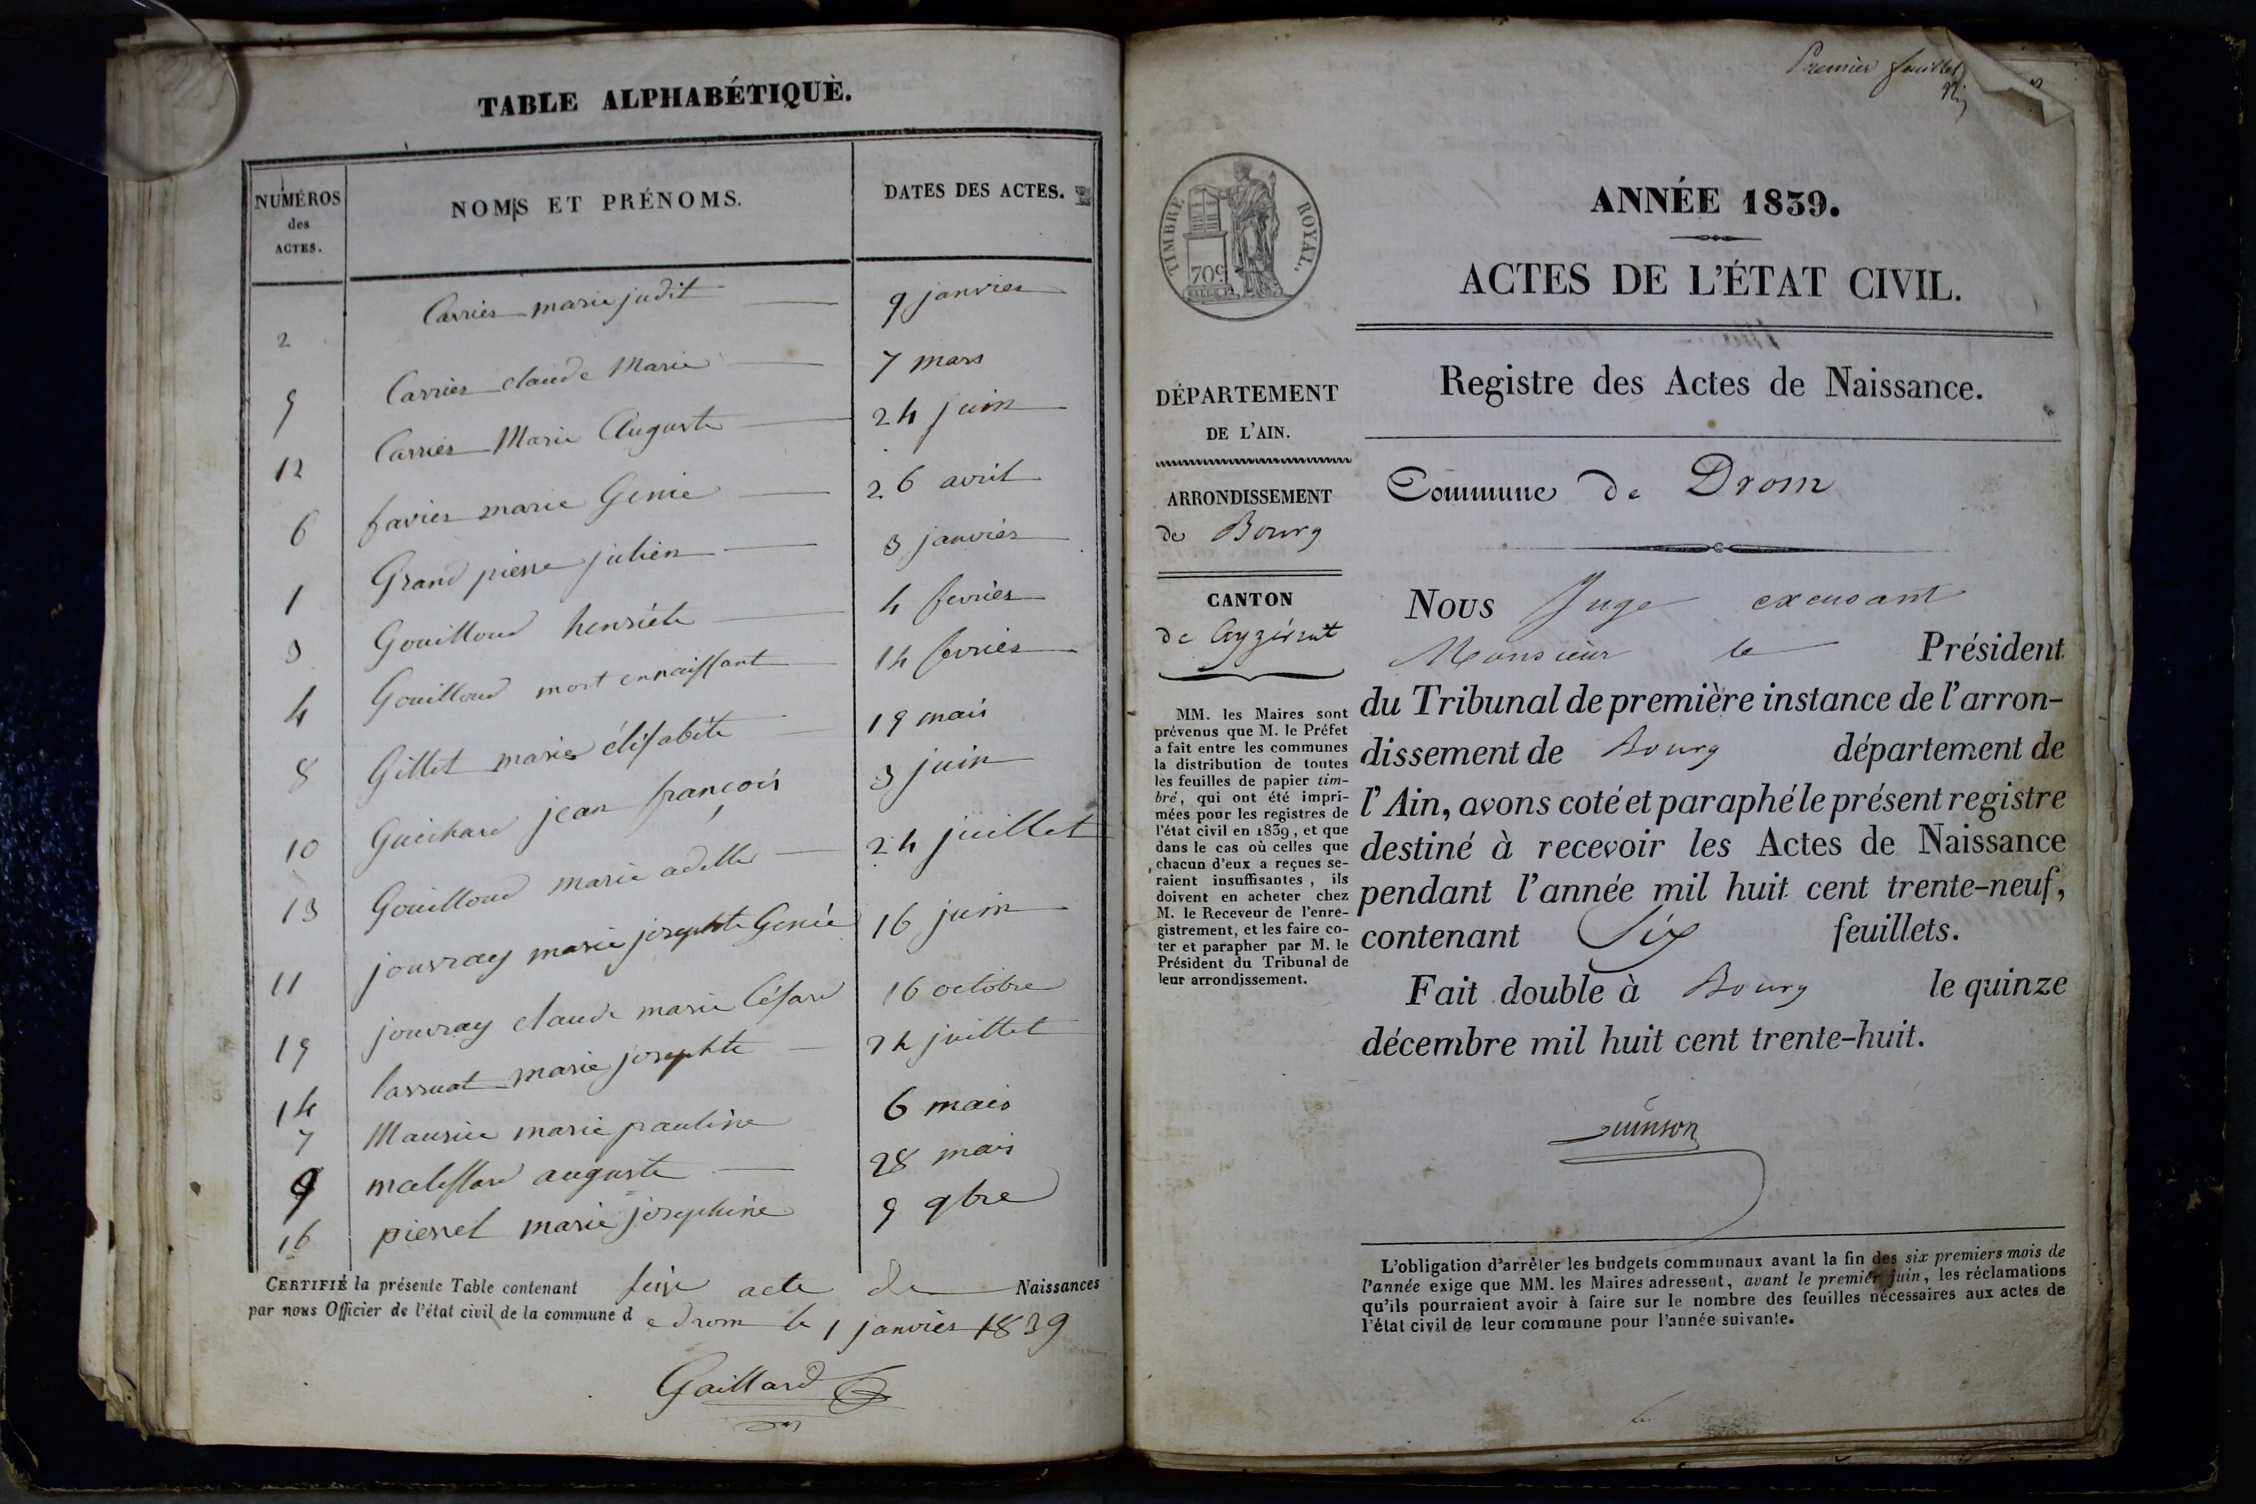 TABLE ALPHABÉTIQUE.
NUMÉROS
des
ACTES.
NOMS ET PRÉNOMS.
DATES DES ACTES.
2 Carrier marie judit 9 janvier
5 Carrier claude Marie 7 mars
12 Carrier Marie Auguste 24 juin
6 favier marie Genie 26 avril
1 Grand pierre julien 3 janvier
3 Gouilloud henriéte 4 fevrier
4 Gouilloud mort ennaissant 14 fevrier
8 Gillet marie élisabéte 19 mai
10 Guichard jean françois 3 juin
13 Gouilloud marie adelle 24 juillet
11 jouvray marie josephte Genie 16 juin
15 jouvray claude marie César 16 octobre
14 lassuat marie josephte 24 juillet
7 Maurice marie pauline 6 mai
9 auguste 28 mai
16 pierrel marie josephine 9 9bre
CERTIFIÉ la présente Table contenant seize acte de Naissances
par nous Officier de l'état civil de la commune de Drom le 1 janvier 1839
Gaillard
Premier feuillet
TIMBRE ROYAL.
70c
ANNÉE 1839.
ACTES DE L'ÉTAT CIVIL.
Registre des Actes de Naissance.
DÉPARTEMENT
DE L'AIN.
ARRONDISSEMENT
de Bourg
CANTON
de Ceyzériat
MM. les Maires sont
prévenus que M. le Préfet
a fait entre les communes
la distribution de toutes
les feuilles de papier tim-
bré, qui ont été impri-
mées pour les registres de
l'état civil en 1839, et que
dans le cas où celles que
chacun d'eux a reçues se-
raient insuffisantes, ils
doivent en acheter chez
M. le Receveur de l'enre-
gistrement, et les faire co-
ter et parapher par M. le
Président du Tribunal de
leur arrondissement.
Commune de Drom
Nous Juge excusant
Monsieur le Président
du Tribunal de première instance de l'arron-
dissement de Bourg département de
l'Ain, avons coté et paraphé le présent registre
destiné à recevoir les Actes de Naissance
pendant l'année mil huit cent trente-neuf,
contenant Six feuillets.
Fait double à Bourg le quinze
décembre mil huit cent trente-huit.
L'obligation d'arrêter les budgets communaux avant la fin des six premiers mois de
l'année exige que MM. les Maires adressent, avant le premier juin, les réclamations
qu'ils pourraient avoir à faire sur le nombre des feuilles nécessaires aux actes de
l'état civil de leur commune pour l'année suivante.